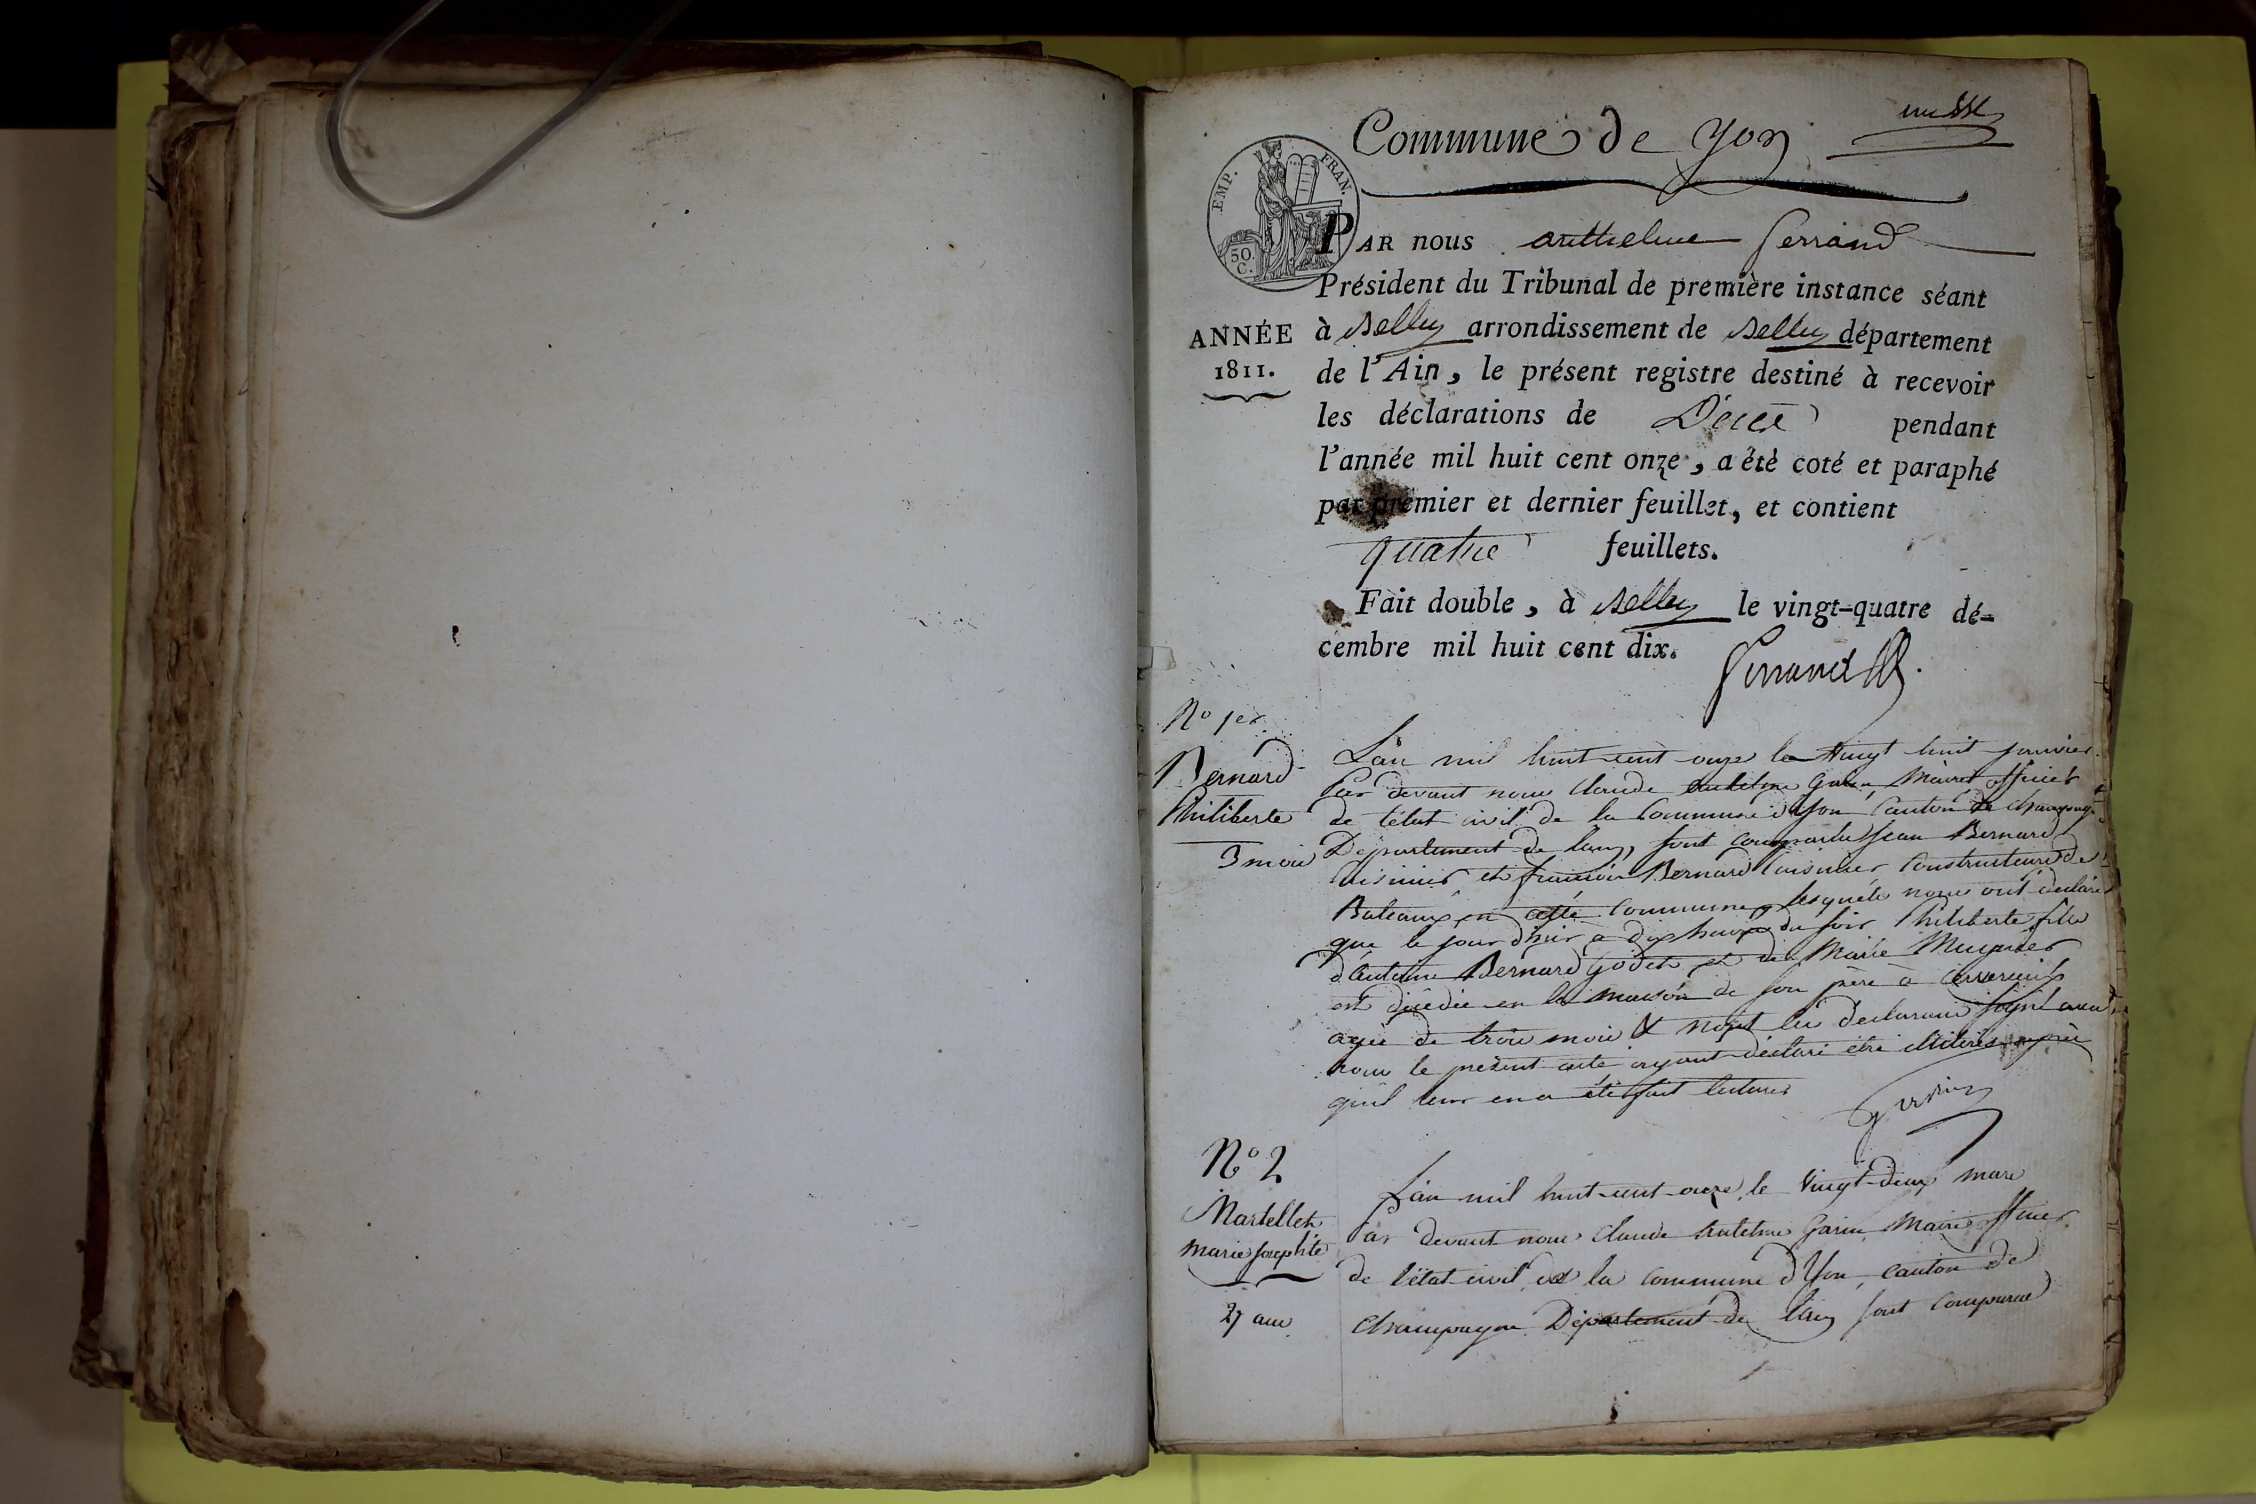 Commune de Yon
EMP. FRAN.
50 C.
PAR nous anthelme ferrand
Président du Tribunal de première instance séant
ANNÉE
1811.
à Belley arrondissement de Belley département
de l'Ain, le présent registre destiné à recevoir
les déclarations de Décès pendant
l'année mil huit cent onze, a été coté et paraphé
par premier et dernier feuillet, et contient
quatre feuillets.
Fait double, à Belley le vingt-quatre dé-
cembre mil huit cent dix.
ferrand
No 1er
Bernard
Philiberte
3 mois
L'an mil huit cent onze le vingt huit janvier
Par devant nous Claude Antelme Garin, Maire officier
de l'état civil de la Commune d'Yon Canton de champagne
Département de l'ain, sont comparus Jean Bernard
Cuisinier et françois Bernard Cuisinier constructeurs de
Bateaux en cette Commune, lesquels nous ont déclaré
que le jour d'hier à dix heures du soir Philiberte fille
d'Antoine Bernard Godet et de Marie Meunier
est décédée en la maison de son père à
agée de trois mois & n'ont les déclarants signé avec
nous le présent acte ayant déclaré être illitérés après
qu'il leur en a été fait lecture
garin
No 2
Martellet
marie Josephte
27 ans
L'an mil huit cent onze, le vingt deux mars
Par devant nous Claude Antelme Garin, Maire officier
de l'état civil de la commune d'Yon, canton de
champagne Département de l'ain sont comparus